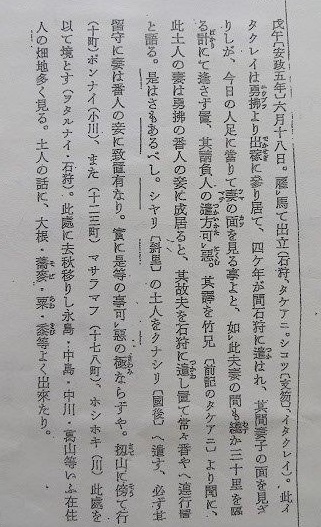 戊午〔安政五年〕六月十八日。雁馬て出立（石狩、タケアニ。シコツ〔支笏〕、イタクレイ）。此イ
タクレイは勇拂より出稼に參り居て、四ケ年が間石狩に遣はれ、其間妻子の面を見ざ
りしが、今日の人足に當りて妻の面を見る亭よと、如此夫妻の間も纔か三十里を隔
る計にて逢さず置、其請負人の遣方可惡。其譯を竹兄〔前記のタケアニ〕より聞に、
此土人の妻は勇拂の番人の妾に成居ると、其故夫を石狩に遣し置て常々番やへ連行置
と語る。是はさもあるべし。シヤリ〔斜里〕の土人をクナシリ〔國後〕へ遣す、必ず其
留守に妻は番人の妾に致置有なり。實に是等の亭可惡の極ならずや。扨山に傍て行
（十町）ポンナイ（小川）、また（十二三町）マサラマフ（十七八町）、ホシホキ（川）此處を
以て境とす（ヲタルナイ・石狩）。此處に去秋移りし永島・中島・中川・葛山等いふ在住
人の畑地多く見る。土人の話に、大根・蕎麥・粟・黍等よく出來たり。